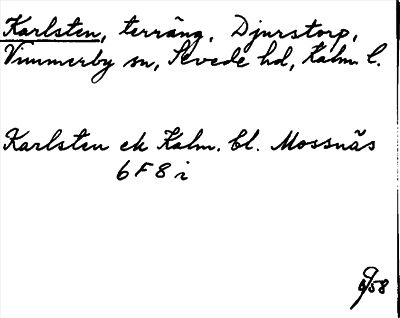 Karlsten, terräng, Djurstorp,
Vimmerby sn, Sevede hd, Kalm. l.
Karlsten ek Kalm. bl. Mossnäs
6 F 8 i